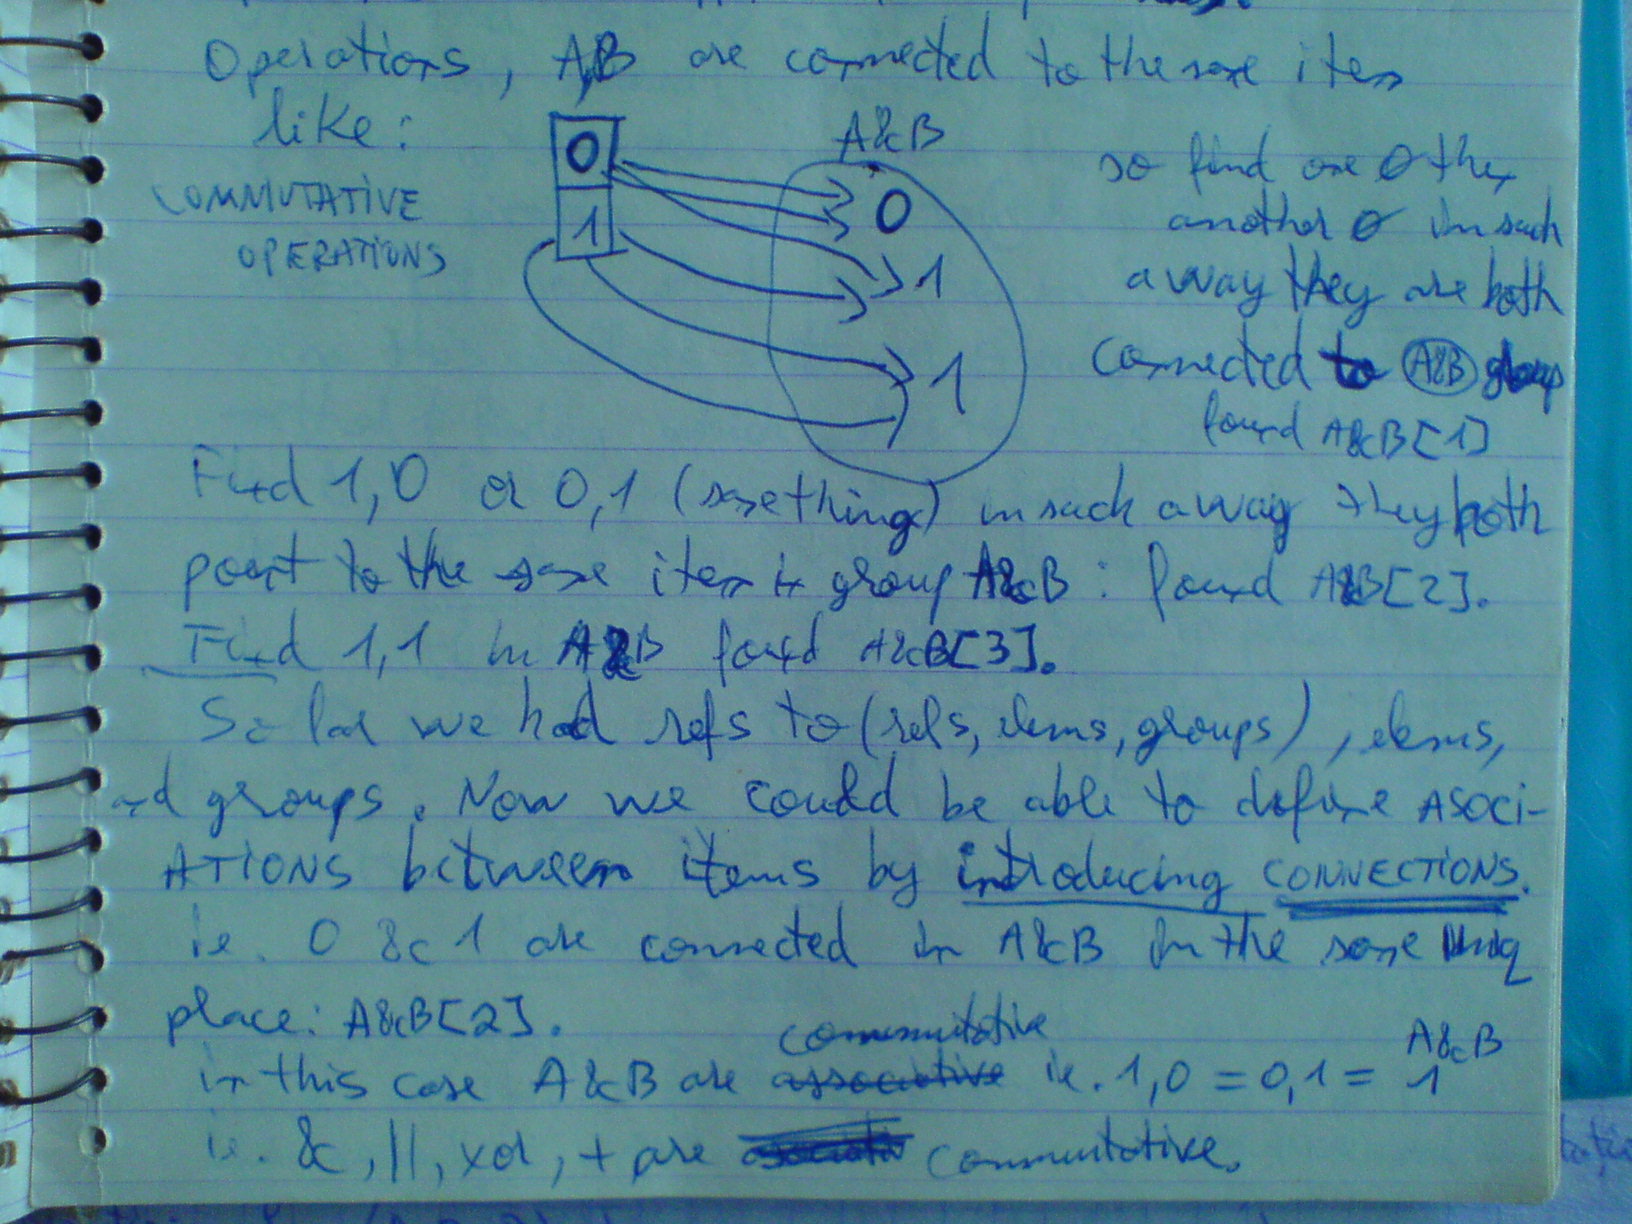 Operations, A,B are connected to the same item
like:
COMMUTATIVE
OPERATIONS
0
1
A&B
0
1
1
so find one 0 then
another 0 in such
a way they are both
connected to A&B group
found A&B[1]
Find 1,0 or 0,1 (something) in such a way they both
point to the same item in group A&B: found A&B[2].
Find 1,1 in A&B found A&B[3].
So far we had refs to (refs, elems, groups), elems,
and groups. Now we could be able to define ASOCI-
ATIONS between items by introducing CONNECTIONS.
ie. 0 & 1 are connected in A&B in the same uniq
place: A&B[2].
commutative
in this case A&B are associative ie. 1,0 = 0,1 = 1
A&B
ie. &, ||, xor, + are commutative.